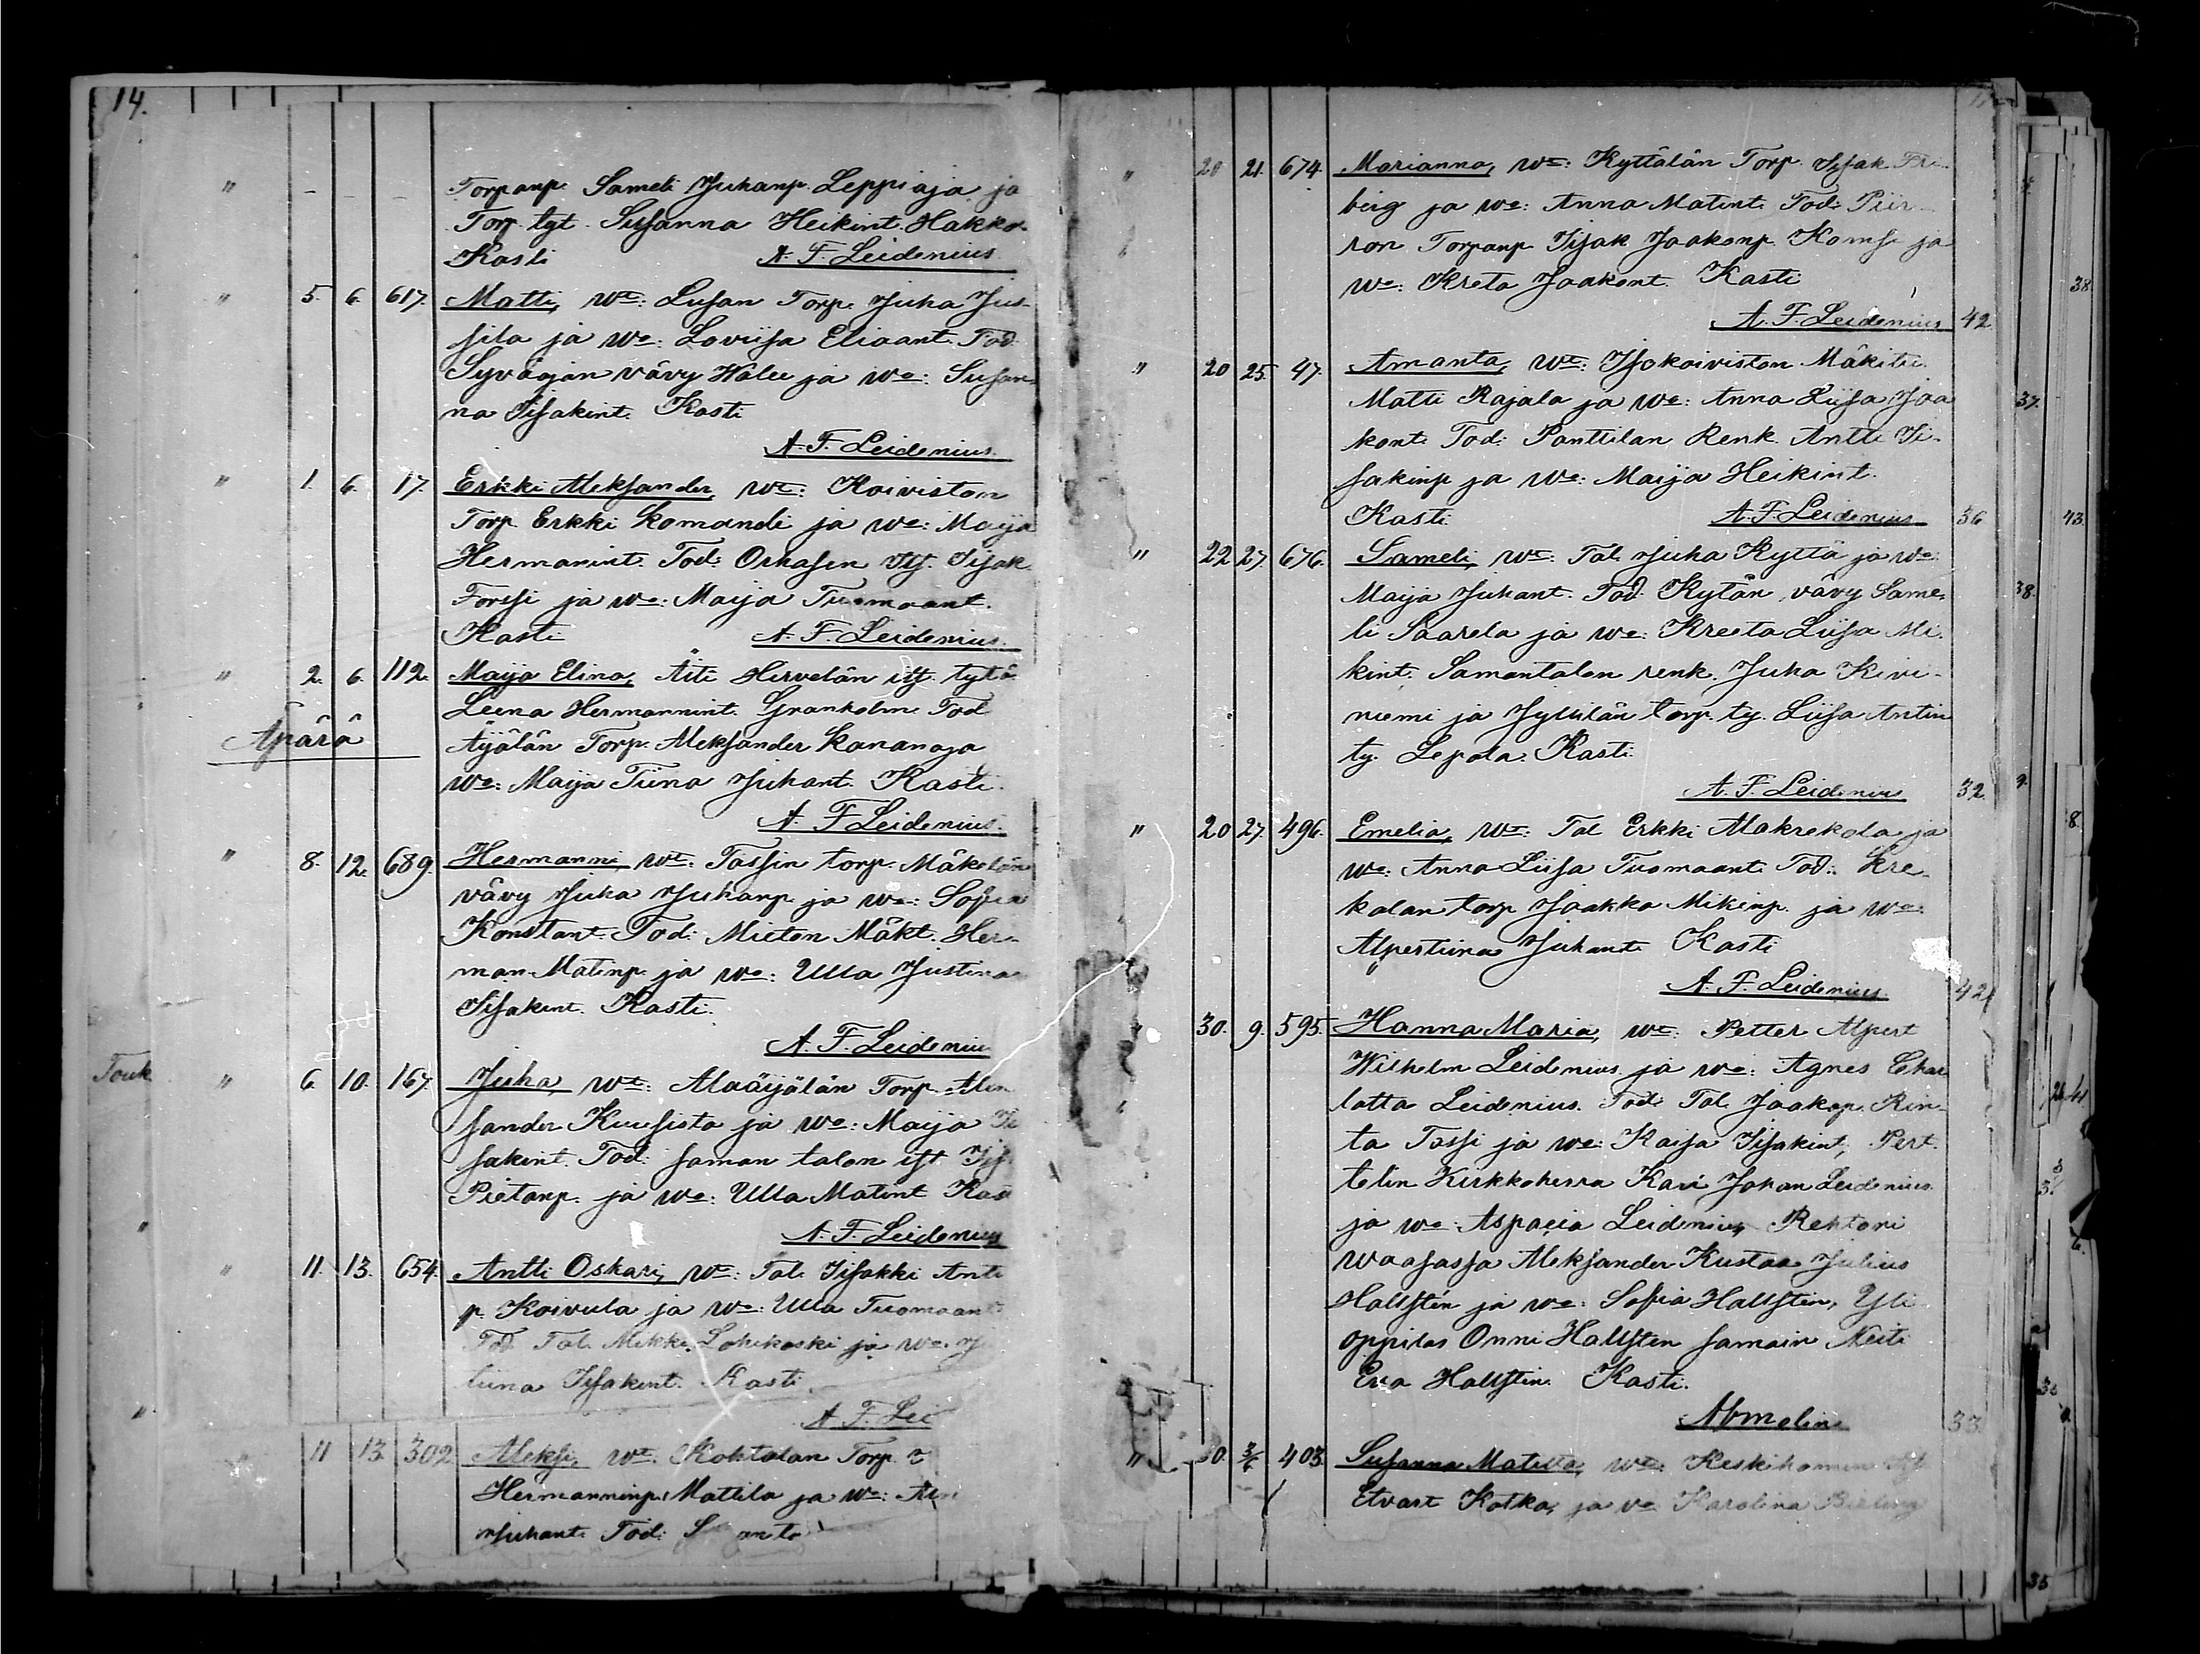 14.
" - - - Torpanp. Sameli Juhanp. Leppiaja ja
Torp. tyt. Susanna Heikint. Hakko.
Kasti A. F. Leidenius.
" 5. 6. 617. Matti, We: Lusan Torp. Juha Jus-
sila ja We: Loviisa Eliaant. Tod:
Syväojan vävy Halee ja We: Susan-
na Iisakint. Kasti
A. F. Leidenius.
" 1. 6. 17. Erkki Aleksander, We: Koiviston
Torp. Erkki Komandi ja We: Maija
Hermanint. Tod: Isak
Forssi ja We: Maija Tuomaant.
Kasti A. F. Leidenius.
" 2. 6. 112. Maija Elina, Äiti Hirvelän itf. tytö
Leena Hermannint. Granholm Tod
Äpärä Äijälän Torp. Aleksander Kananoja
We: Maija Tiina Juhant. Kasti.
A. F. Leidenius.
" 8. 12. 689. Hermanni, We: Tassin torp. Mäkelän
vävy Juha Juhanp. ja We: Sofia
Konstant. Tod: Mieton Mäkt. Her-
man Matinp. ja We: Ulla Justina
Iisakint. Kasti.
A. F. Leidenius
Touk " 6. 10. 167. Juha, We: Alaäijälän Torp. Alek
sander Kuusisto ja We: Maija Ii
sakint. Tod: saman talon itf. Iis
Pietanp. ja We: Ulla Matint Kas
A. F. Leidenius
" 11. 13. 654. Antti Oskari, We: Tal. Iisakki Anti
p. Koivula ja We: Ulla Tuomaant
Tod Tal. Mikki Lohikoski ja We. Ju
tiina Iisakint. Kasti
A. F. Lei
11 13. 302 Aleksi, We. Kohtalan Torp.
Hermanninp. Mattila ja We:
Juhant. Tod:
" 20 21. 674. Marianna, We: Kyttälän Torp. Isak Fri-
berg ja We: Anna Matint. Tod: Piir-
ron Torpanp. Iisak Jaakonp. Komsi ja
We: Kreta Jaakont. Kasti
A. F. Leidenius 42
" 20 25. 47. Amanta, We: Isokoiviston Mäkitu.
Matti Rajala ja We: Anna Liisa Jaa
kont. Tod: Panttilan Renk. Antti Ii-
sakinp ja We: Maija Heikint.
Kasti A. F. Leidenius 36
" 22 27. 676. Sameli, We: Tal. Juha Kyttä ja We:
Maija Juhant. Tod. Kytän vävy Same-
li Saarela ja We: Kreeta Liisa Mi-
kint. Samantalon renk. Juha Kivi-
niemi ja Jyllilän torp. ty. Liisa Antin
ty. Lepola. Kasti
A. F. Leidenius 32.
" 20 27. 496. Emelia, We: Tal. Erkki Alakrekola ja
We: Anna Liisa Tuomaant. Tod: Kre-
kolan torp Jaakko Mikinp. ja We:
Alpertiina Juhant. Kasti
A. F. Leidenius. 42
" 30. 9. 595. Hanna Maria, We: Petter Alpert
Wilhelm Leidenius ja We: Agnes Char
lotta Leidenius. Tod: Tal. Jaakop. Rin-
ta Tassi ja We: Kaisa Iisakint, Pert-
telin Kirkkoherra Kari Johan Leidenius
ja We: Aspasia Leidenius, Rehtori
Waasassa Aleksander Kustaa Julius
Hallstén ja We: Sofia Hallsten, Yli-
oppilas Onni Hallsten samain Neiti
Eva Hallsten. Kasti.
Almelin 33.
" 30. 3/6 403. Susanna Matilda, We: Keskihomen itf
Etvart Kotka, ja ve Karolina
38
37.
43.
38.
8.
35